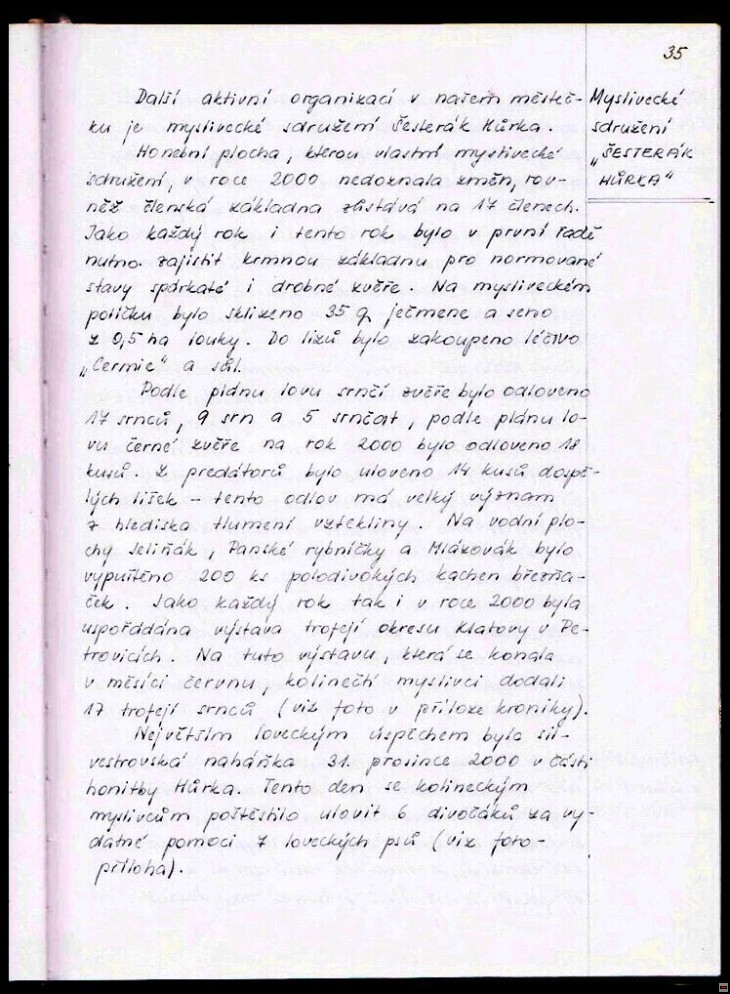 35
Další aktivní organizací v našem městeč-
ku je myslivecké sdružení Šesterák Hůrka.
Honební plocha, kterou vlastní myslivecké
sdružení, v roce 2000 nedoznala změn, rov-
něž členská základna zůstává na 17 členech.
Jako každý rok i tento rok bylo v první řadě
nutno zajistit krmnou základnu pro normované
stavy spárkaté i drobné zvěře. Na mysliveckém
políčku bylo sklizeno 35 q ječmene a seno
z 0,5 ha louky. Do lizů bylo zakoupeno léčivo
„Cermic" a sůl.
Podle plánu lovu srnčí zvěře bylo odloveno
17 srnců, 9 srn a 5 srnčat, podle plánu lo-
vu černé zvěře na rok 2000 bylo odloveno 18
kusů. Z predátorů bylo uloveno 14 kusů dospě-
lých lišek – tento odlov má velký význam
z hlediska tlumení vztekliny. Na vodní plo-
chy Seliňák, Panské rybníčky a Mlázovák bylo
vypuštěno 200 ks polodivokých kachen březňa-
ček. Jako každý rok tak i v roce 2000 byla
uspořádána výstava trofejí okresu Klatovy v Pe-
trovicích. Na tuto výstavu, která se konala
v měsíci červnu, kolinečtí myslivci dodali
17 trofejí srnců (viz foto v příloze kroniky).
Největším loveckým úspěchem byla sil-
vestrovská naháňka 31. prosince 2000 v části
honitby Hůrka. Tento den se kolineckým
myslivcům poštěstilo ulovit 6 divočáků za vy-
datné pomoci 7 loveckých psů (viz foto-
příloha).
Myslivecké
sdružení
„ŠESTERÁK
HŮRKA"